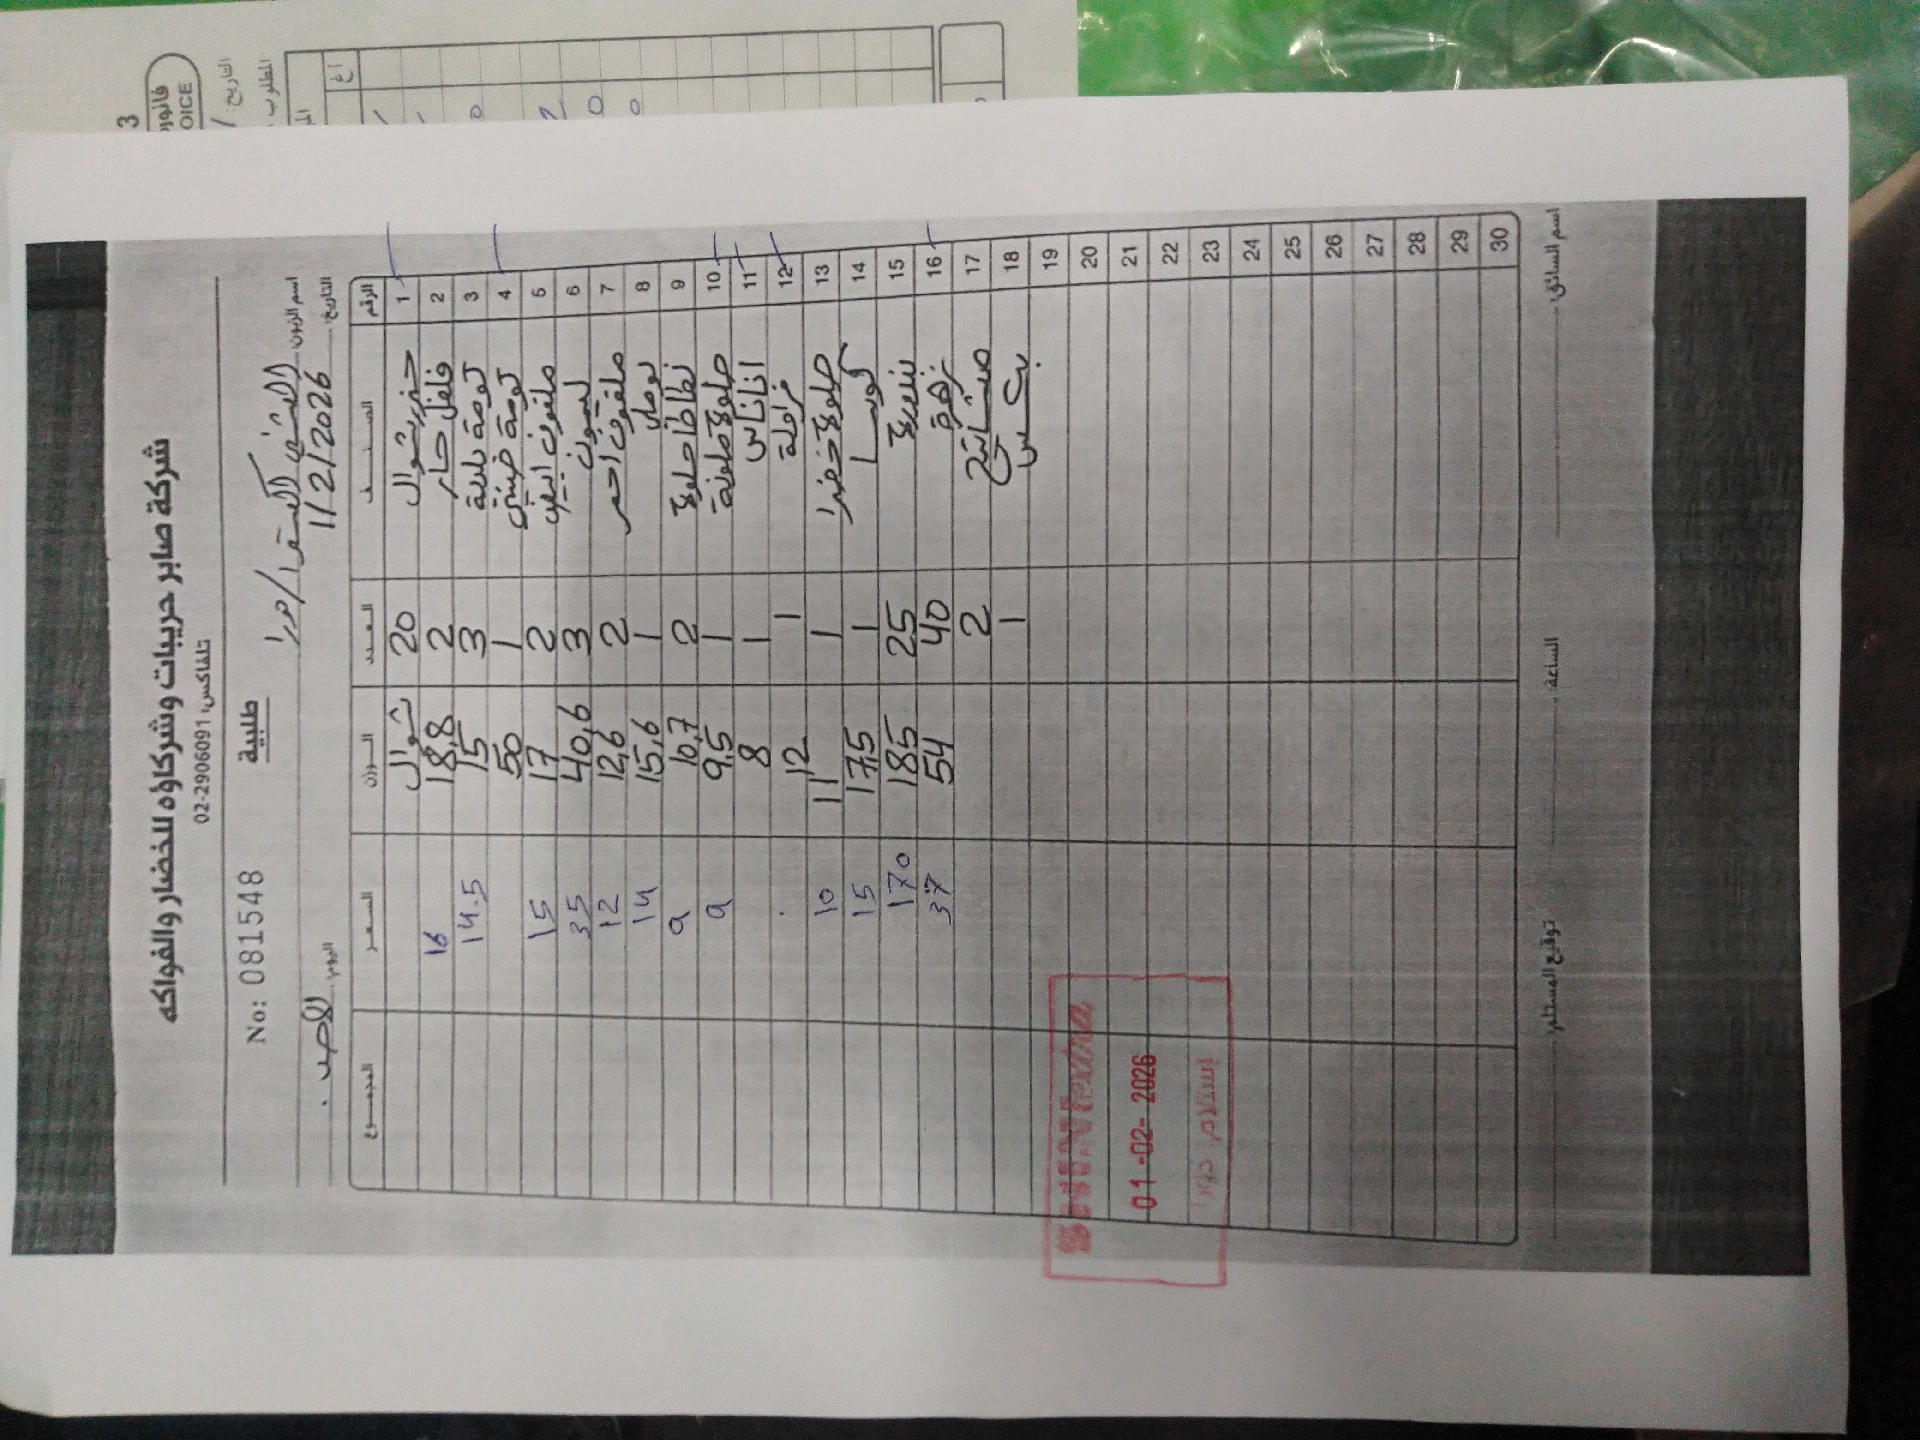 شركة صابر حريبات وشركاؤه للخضار والفواكه
تلفاكس: 02-2906091
No: 081548
طلبية
اسم الزبون
التاريخ: 1/2/2026
اليوم الأحد
الرقم الصنف العدد الوزن السعر المجموع
1 جزر شوال 20 شوال
2 فلفل حار 2 18,8 16
3 كوسة بلدية 3 15 14.5
4 1 50
5 ملفوف ابيض 2 17 15
6 ليمون 3 40,6 35
7 ملفوف احمر 2 12,6 12
8 بوملي 1 15,6 14
9 بطاطا حلوة 2 10,7 9
10 حلوة ملونة 1 9,5 9
11 اناناس 1 8
12 فراولة 1 12
13 حلوة خضرا 1 11 10
14 1 17,5 15
15 بندورة 25 185 170
16 زهرة 40 54 37
17 2
18 1
19
20
21
22
23
24
25
26
27
28
29
30
اسم السائق
الساعة
توقيع المستلم
01-02-2026
3
فاتورة
OICE
التاريخ:
المطلوب